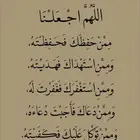 اللَّهُمَّ اجْعَلْنَا
مِمَّنْ حَفِظَكَ فَحَفِظْتَهُ،
وَمِمَّنِ اسْتَهْدَاكَ فَهَدَيْتَهُ،
وَمِمَّنِ اسْتَغْفَرَكَ فَغَفَرْتَ لَهُ،
وَمِمَّنْ دَعَاكَ فَأَجَبْتَ دُعَاءَهُ،
وَمِمَّنْ تَوَكَّلَ عَلَيْكَ فَكَفَيْتَهُ.